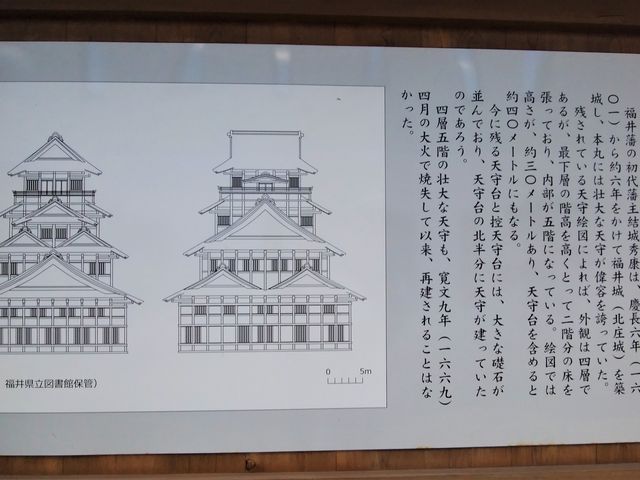 福井藩の初代藩主結城秀康は、慶長六年（一六
〇一）から約六年をかけて福井城（北庄城）を築
城し、本丸には壮大な天守が偉容を誇っていた。
残されている天守絵図によれば、外観は四層で
あるが、最下層の階高を高くとって二階分の床を
張っており、内部が五階になっている。絵図では
高さが、約三〇メートルあり、天守台を含めると
約四〇メートルにもなる。
今に残る天守台と控天守台には、大きな礎石が
並んでおり、天守台の北半分に天守が建っていた
のであろう。
四層五階の壮大な天守も、寛文九年（一六六九）
四月の大火で焼失して以来、再建されることはな
かった。
福井県立図書館保管）
0 5m